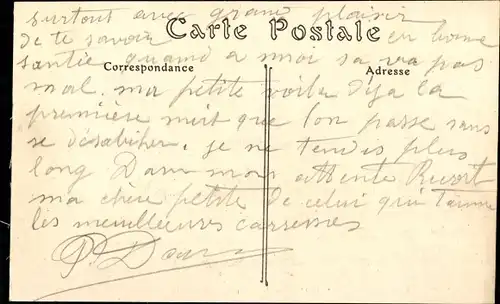 surtout avec grand plaisir
Carte Postale
de te savoir en bonne
santée quand a moi sa va pas
Correspondance
Adresse
mal. ma petite voila déja la
première nuit que l'on passe sans
se désabiher, je ne tendis plus
long Dans mon attente Reçoit
ma chère petite de celui qui t'aime
les meuilleures caresses